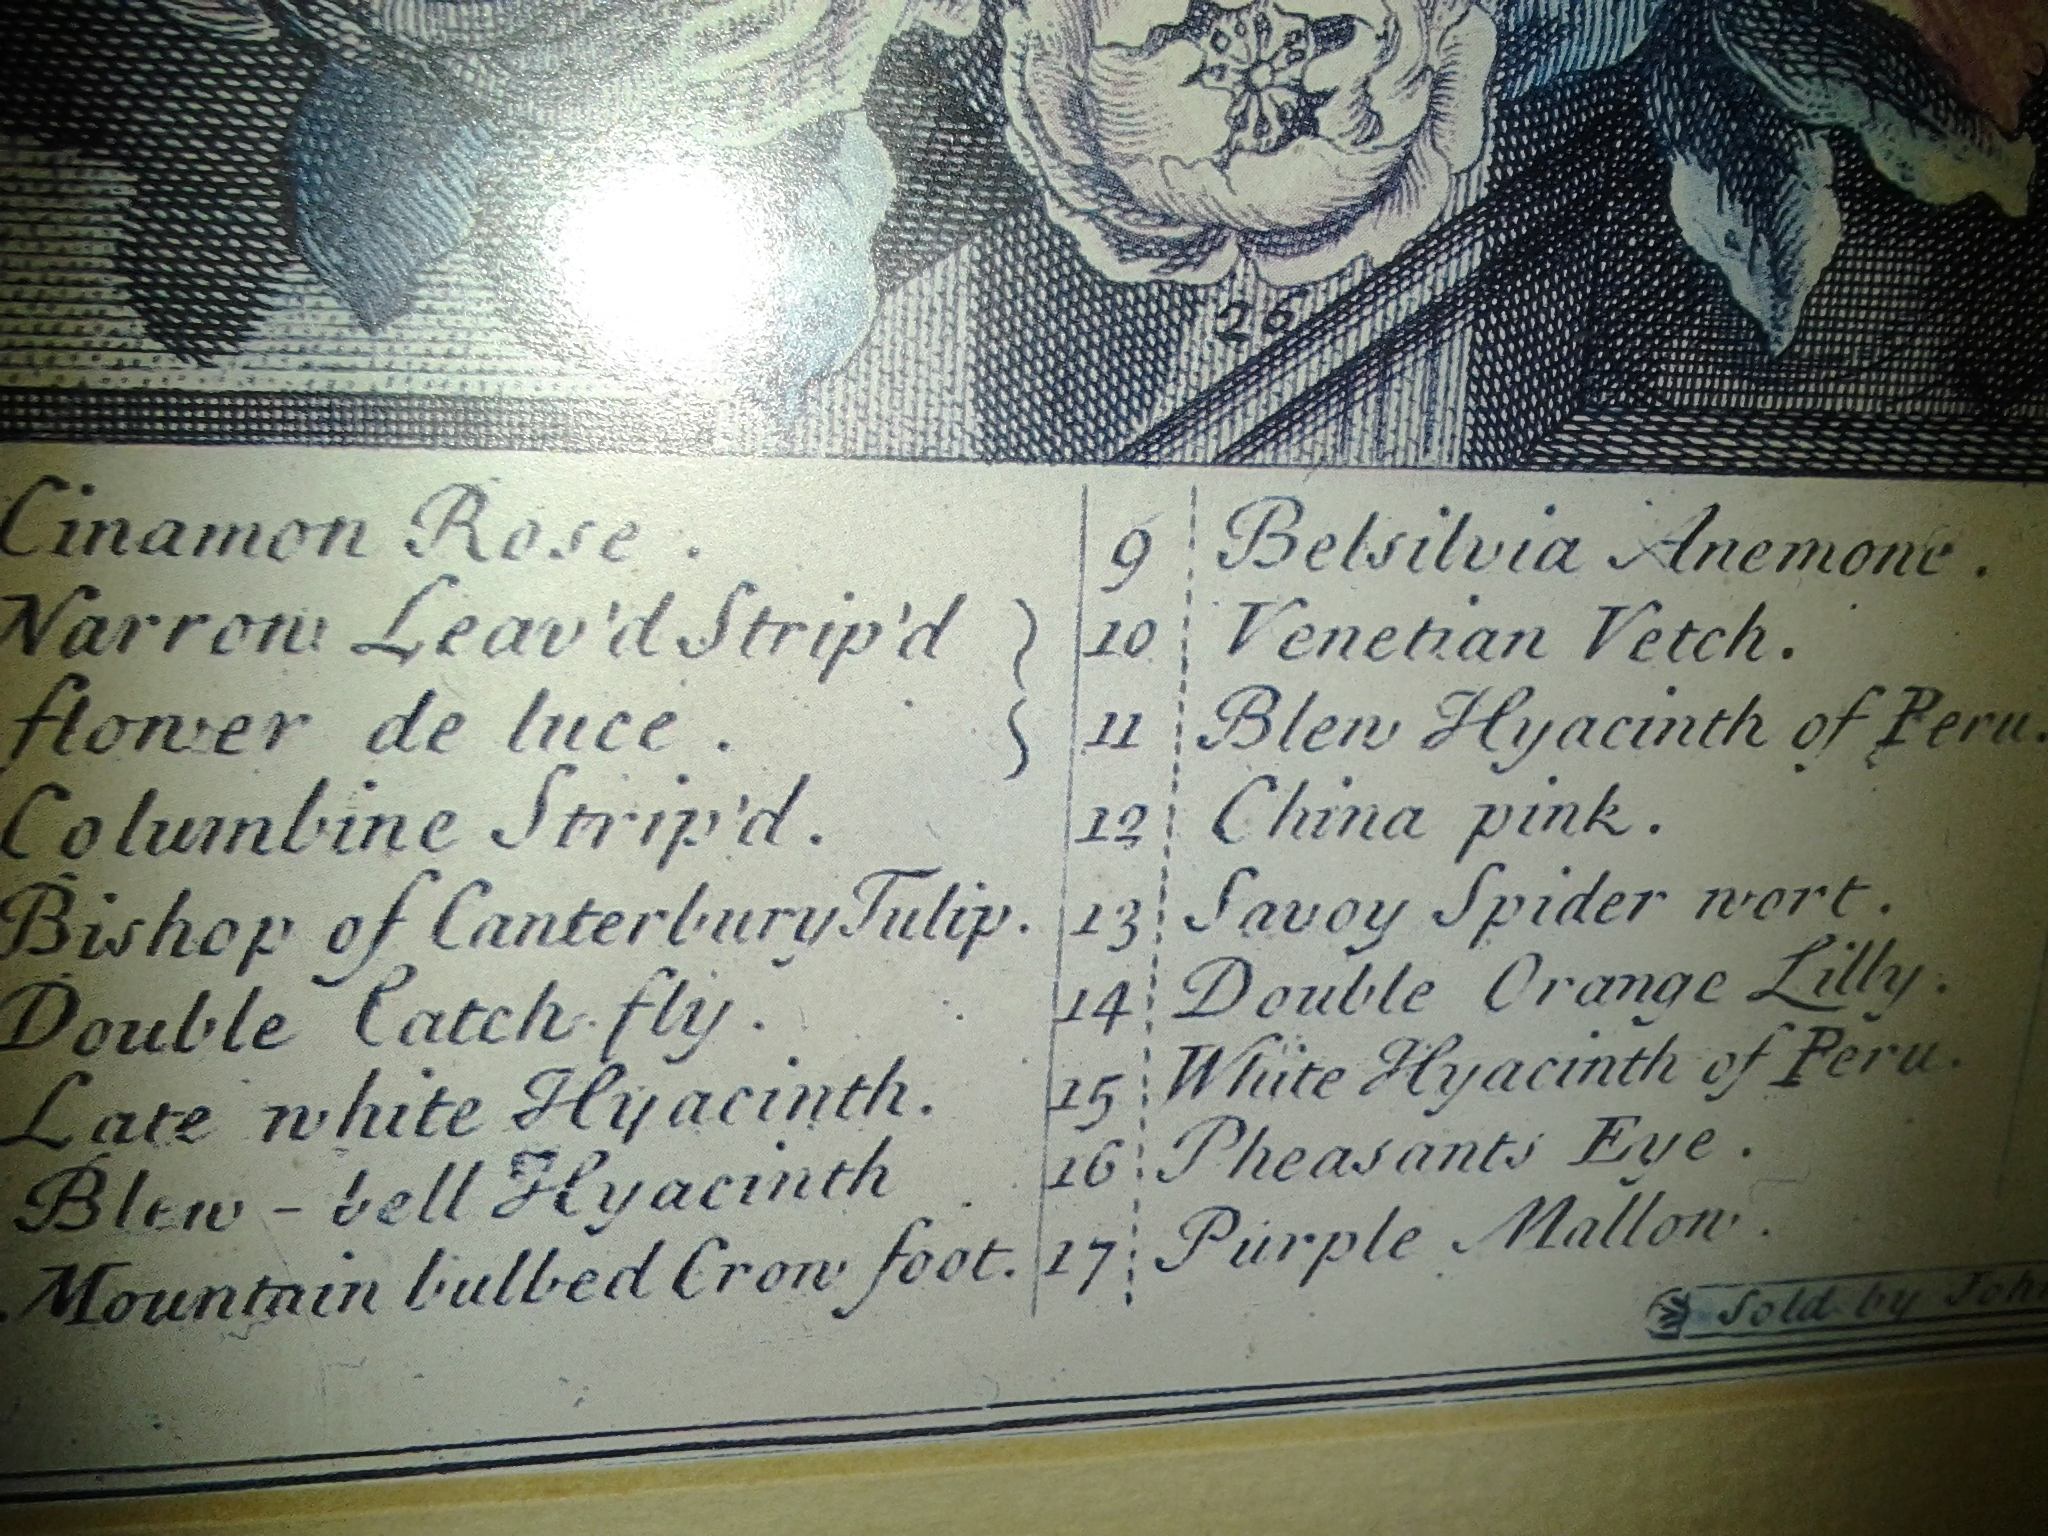 26
Cinamon Rose.
Narrow Leav'd Strip'd
flower de luce.
Columbine Strip'd.
Bishop of Canterbury Tulip.
Double Catch fly.
Late white Hyacinth.
Blew-bell Hyacinth
Mountain bulbed Crow foot.
9 Belsilvia Anemone.
10 Venetian Vetch.
11 Blew Hyacinth of Peru.
12 China pink.
13 Savoy Spider wort.
14 Double Orange Lilly.
15 White Hyacinth of Peru.
16 Pheasants Eye.
17 Purple Mallow.
Sold by John